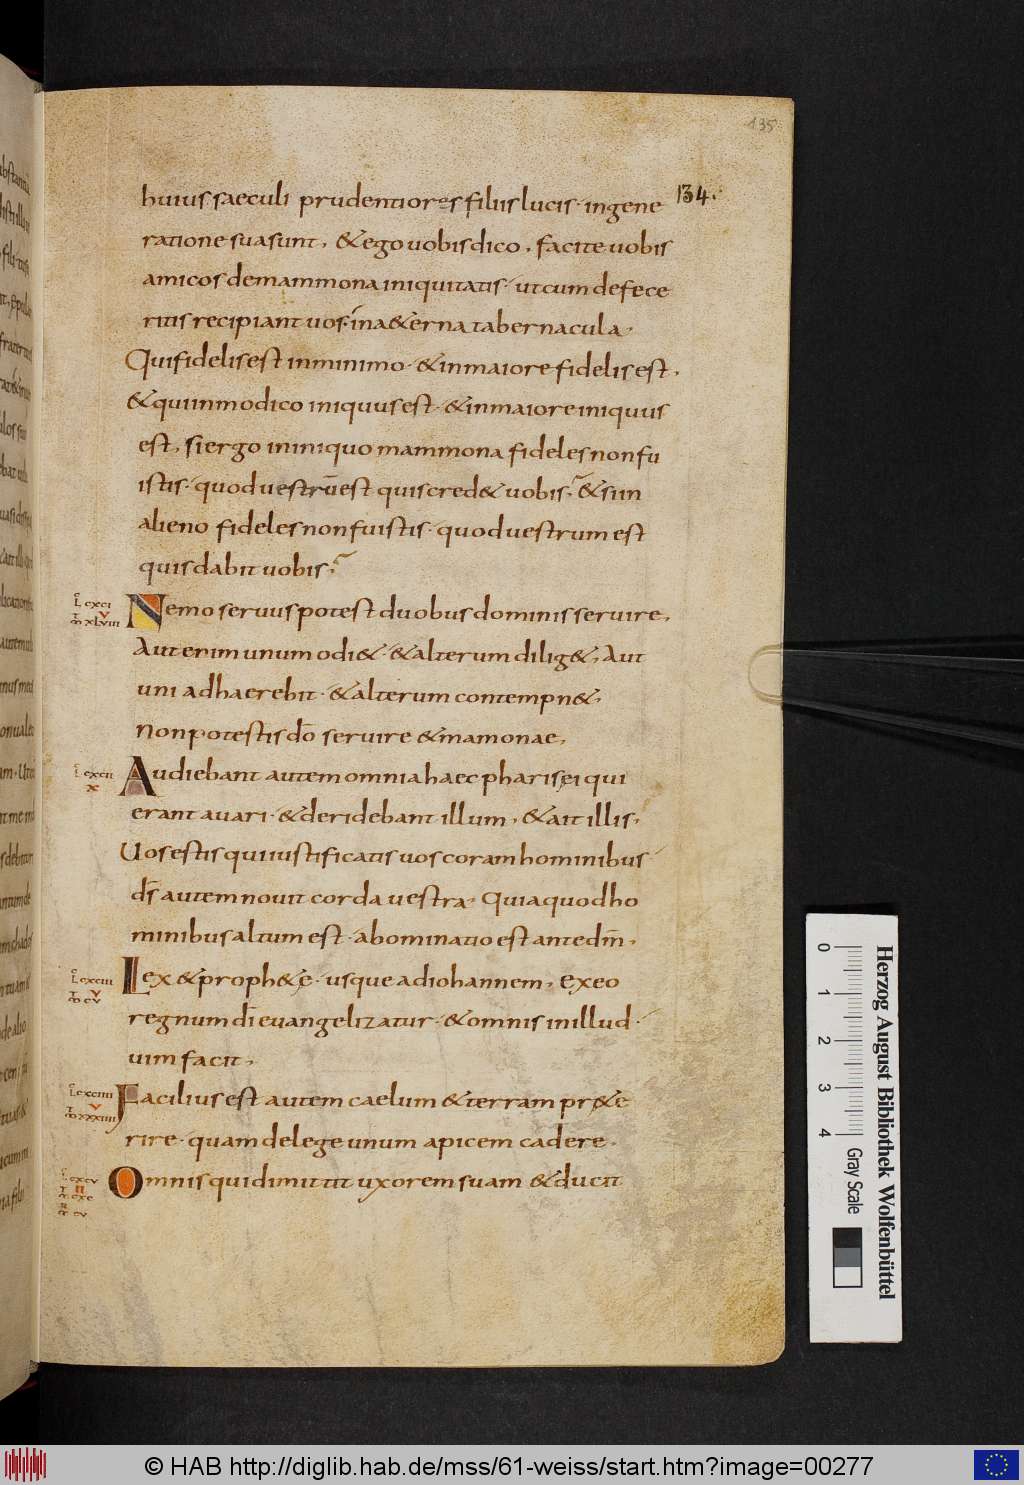 135
134.
huius saeculi prudentiores filiis lucis · in gene
ratione sua sunt, & ego uobis dico, facite uobis
amicos de mammona iniquitatis · ut cum defece
ritis recipiant uos · in a&erna tabernacula,
Qui fidelis est in minimo · & in maiore fidelis est,
& qui in modico iniquus est · & in maiore iniquus
est, si ergo in iniquo mammona fideles non fu
istis · quod uestrū est quis cred& uobis? & si in
alieno fideles non fuistis · quod uestrum est
quis dabit uobis?
Nemo seruus potest duobus dominis seruire,
Aut enim unum odi& · & alterum dilig&, Aut
uni adhaerebit · & alterum contempn&,
Non potestis dō seruire & mamonae,
Audiebant autem omnia haec pharisęi qui
erant auari · & deridebant illum, & ait illis,
Uos estis qui iustificatis uos coram hominibus
d̄s autem nouit corda uestra, Quia quod ho
minibus altum est · abominatio est ante dm̄,
Lex & proph&ę · usque ad iohannem, Exeo
regnum dī euangelizatur · & omnis in illud ·
uim facit,
Facilius est autem caelum & terram pr&e
rire · quam de lege unum apicem cadere ·
Omnis qui dimittit uxorem suam & ducit
L cxci
V
m xlviii
L cxcii
x
L cxciii
V
m cv
L cxciiii
V
m xxxiiii
L cxcv
II
m cxc
m cv
0
1
2
3
4
Herzog August Bibliothek Wolfenbüttel
Gray Scale
© HAB http://diglib.hab.de/mss/61-weiss/start.htm?image=00277